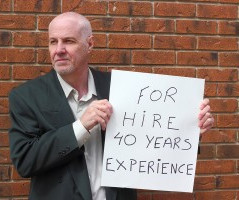 FOR
HIRE
40 YEARS
EXPERIENCE